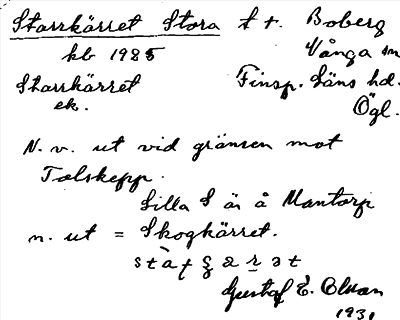 Starrkärret Stora t r. Boberg
kb 1985 Vånga sn
Starrkärret Finsp. Läns hd.
ek. Ögl.
N. v. ut vid gränsen mot
Tolskepp.
Lilla S är å Mantorp
n. ut = Skogkärret.
Gustaf E. Olsson
1931